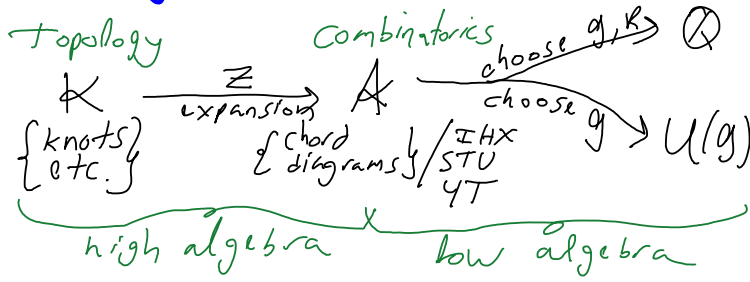 Topology
Combinatorics
K
Z
expansion
A
choose g, R
Q
choose g
U(g)
{knots etc.}
{chord diagrams}/
IHX
STU
4T
high algebra
low algebra